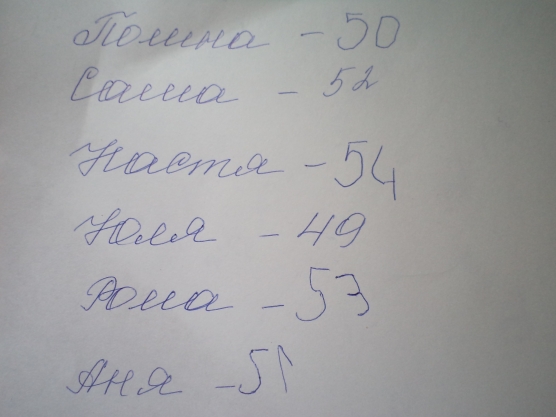 Полина - 50
Саша - 52
Настя - 54
Юля - 49
Рома - 53
Аня - 51